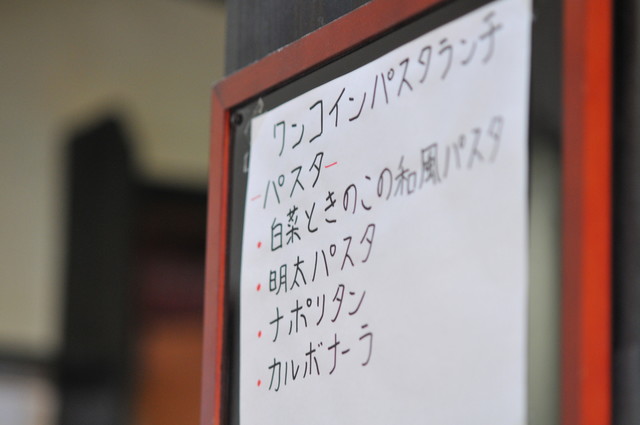 ワンコインパスタランチ
-パスタ-
・白菜ときのこの和風パスタ
・明太パスタ
・ナポリタン
・カルボナーラ